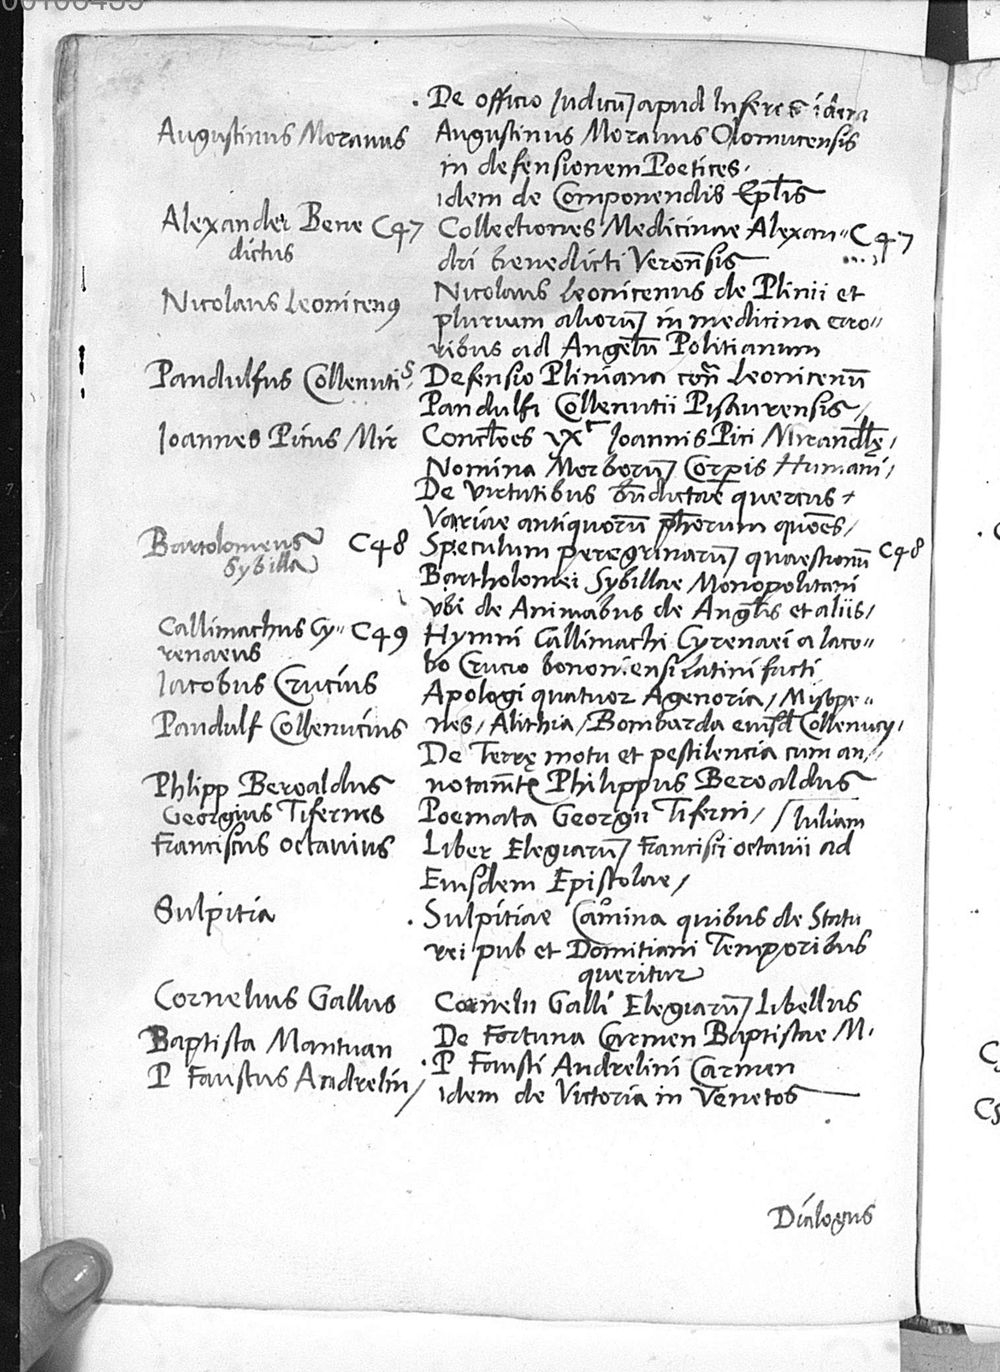 De officio Iudicũ apud Inferes idem
Augustinus Morauus Augustinus Morauus Olomucensis
in defensionem Poetices.
idem de Componendis Eplis
Alexander Bene C47 Collectiones Medicinae Alexan= C47
dictus dri benedicti Veronẽsis
Nicolaus Leonicenꝰ Nicolaus Leonicenus de Plinii et
plurium aliorũ in medicina erro=
ribus ad Angelũ Politianum
Pandulfus Collenutiꝰ Defensio Pliniana con̄ Leonicenũ
Pandulfi Collenutii Pisaurensis/
Ioannes Picus Mir Ioannis Pici Mirandlę/
Nomina Morborũ Corpis Humani/
De virtutibus bñdictae quercus +
Variae antiquorũ phorum
Bartolomeus C48 Speculum peregrinarũ quaestionũ C48
Sybilla Bartholomei Sybillae Monopolitani
vbi de Animabus de Anglis et aliis/
Callimachus Cy= C49 Hymni Callimachi Cyrenaei a Iaco=
renaeus bo Crucio bononiensi Latini facti
Iacobus Crucius Apologi quatuor Agenoria/ Misope=
Pandulf Collenucius nes/ Alithia/ Bombarda eiusd Collenucy/
De Terrę motu et pestilencia cum an=
Phlipp Beroaldus Philippus Beroaldus
Georgius Tifernes Poemata Georgii Tiferni/ Iuliam
Franciscus octauius Liber Elegiarũ Francisci octauii ad
Eiusdem Epistolae/
Sulpitia Sulpitiae Camina quibus de Statu
rei pub et Domitiani Temporibus
queritur
Cornelius Gallus Cornelii Galli Elegiarũ Libellus
Baptista Mantuan De Fortuna Carmen Baptistae M.
P Faustus Andrelin/ P Fausti Andrelini Carmen
idem de Victoria in Venetos
Dialogus